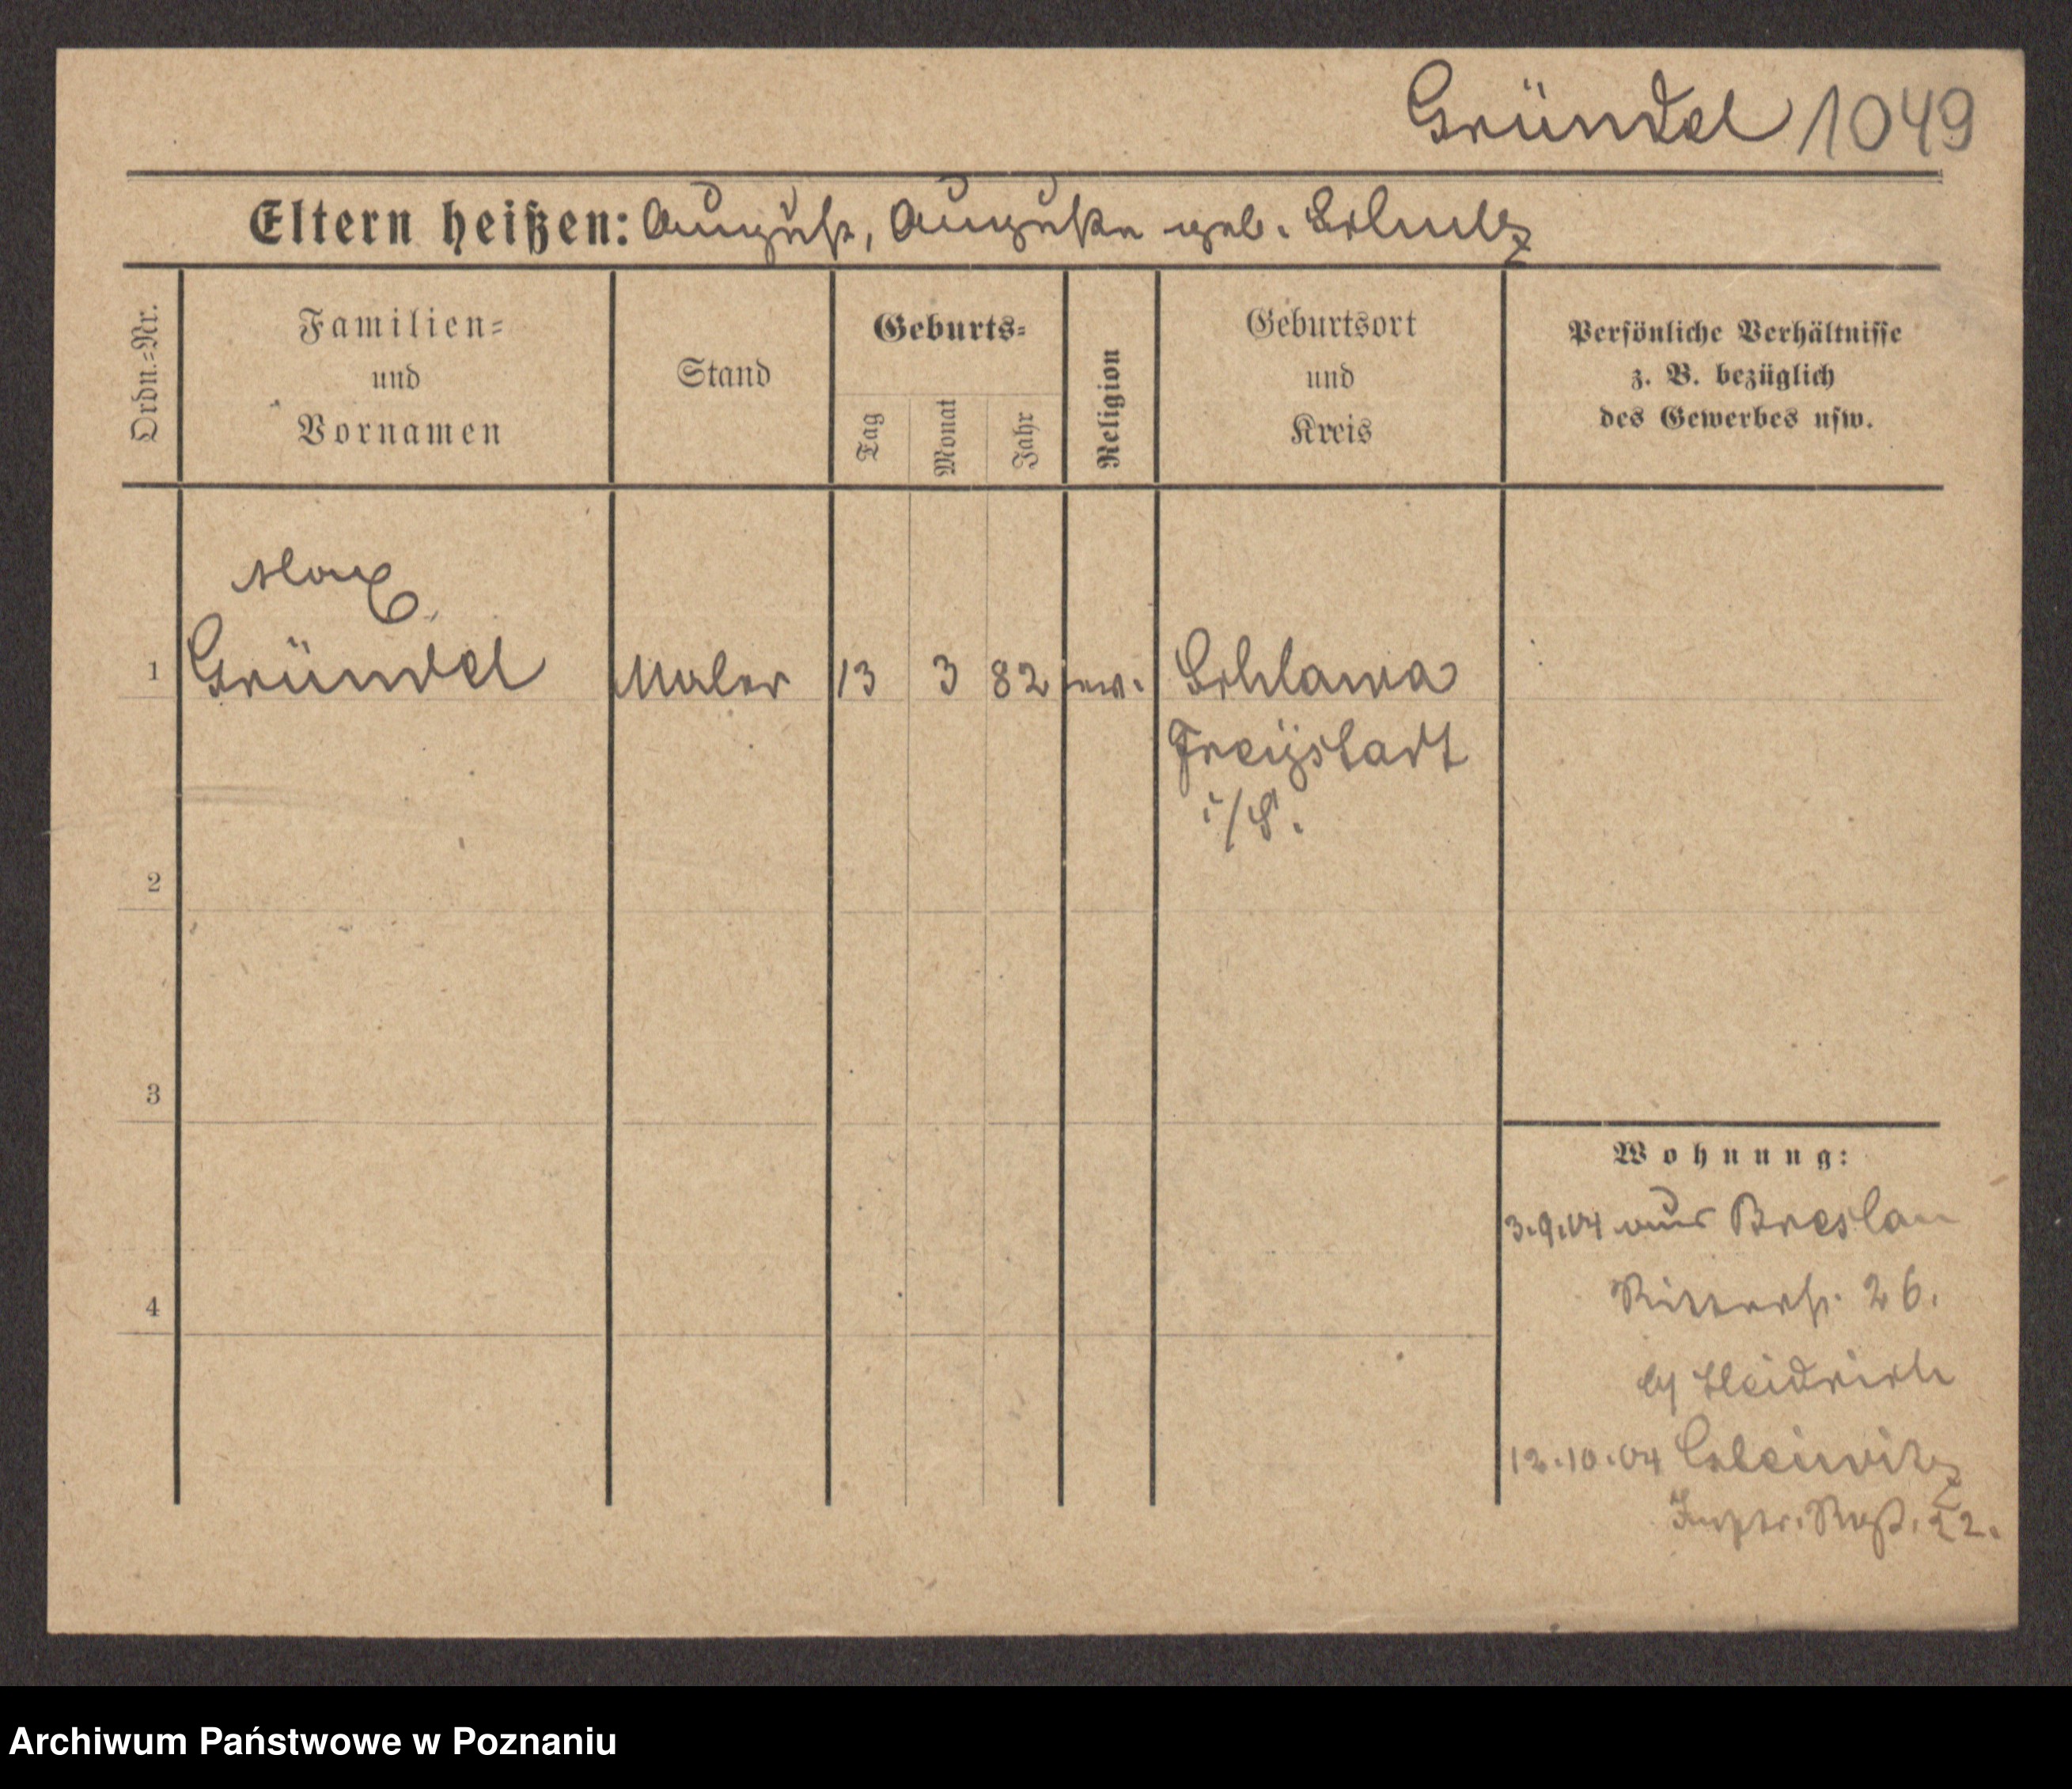 Gründel 1049
Eltern heißen: August, Auguste geb. Schulz
Ordn.=Nr.
Familien=
und
Vornamen
Stand
Geburts=
Tag
Monat
Jahr
Religion
Geburtsort
und
Kreis
Persönliche Verhältnisse
z. B. bezüglich
des Gewerbes usw.
Max
1 Gründel Maler 13 3 82 ev. Schlawa
Freÿstadt
i/S.
2
3
4
Wohnung:
3.9.04 aus Breslau
Ritterst. 26.
by Heidrich
12.10.04 Gleiwitz
22.
Archiwum Państwowe w Poznaniu